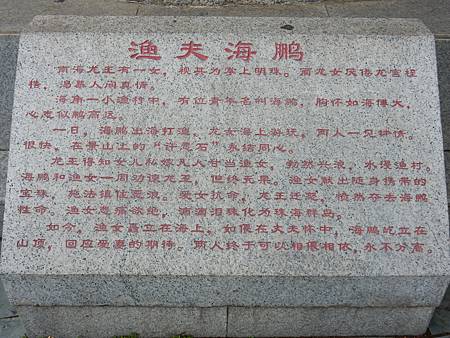 渔夫海鹏
南海龙王有一女，视其为掌上明珠。而龙女厌倦龙宫桎
梏，渴慕人间真情。
海南一小渔村中，有位青年名叫海鹏，胸怀如海博大，
心志似鹏高远。
一日，海鹏出海打渔，龙女海上游玩，两人一见钟情。
很快，在景山上的“许愿石”永结同心。
龙王得知女儿私嫁凡人甘当渔女，勃然兴浪，水浸渔村。
海鹏和渔女一同劝谏龙王，但终无果。渔女献出随身携带的
宝珠，施法镇住恶浪。爱女抗命，龙王迁怒，愤然夺去海鹏
性命。渔女悲痛欲绝，滴滴泪珠化为珠海群岛。
如今，渔女矗立在海上，如偎在丈夫怀中，海鹏屹立在
山顶，回应爱妻的期待。两人终于可以相偎相依，永不分离。